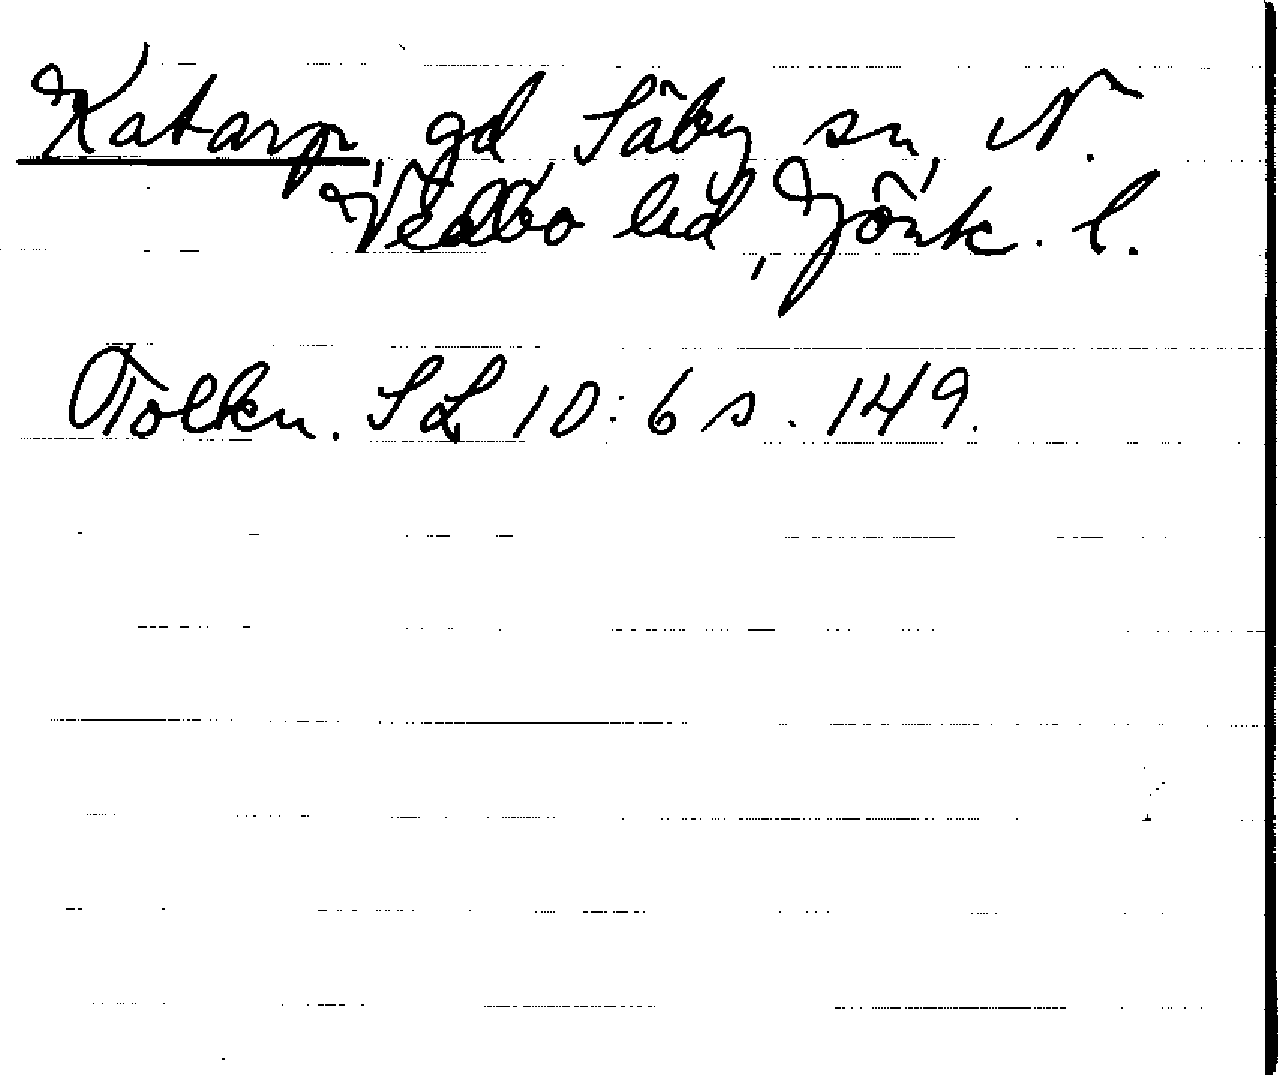 Katarp, gd, Säby sn, N.
Vedbo hd, Jönk. l.
Tolkn. SL 10:6 s. 149.